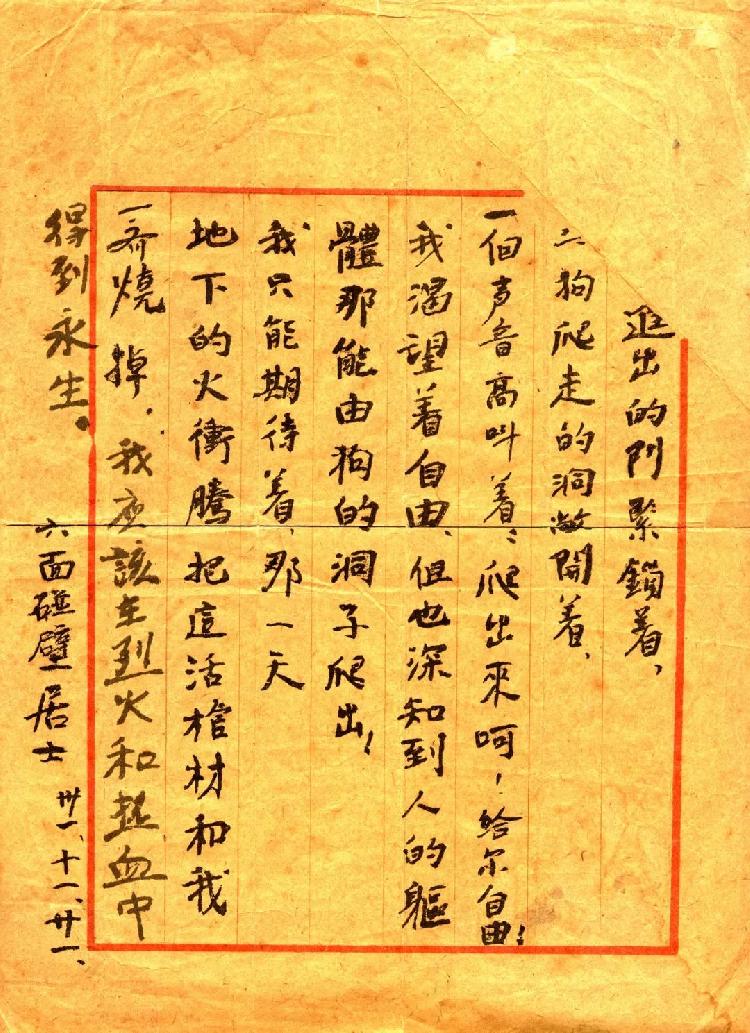 進出的門緊鎖着、
狗爬走的洞敞開着、
一個声音高叫着：爬出來呵！給尔自由！
我渴望着自由、但也深知到人的軀
體那能由狗的洞子爬出！
我只能期待着、那一天
地下的火衝騰把這活棺材和我
一齐燒掉．我应該在烈火和热血中
得到永生。
六面碰壁居士
卅一、十一、廿一、